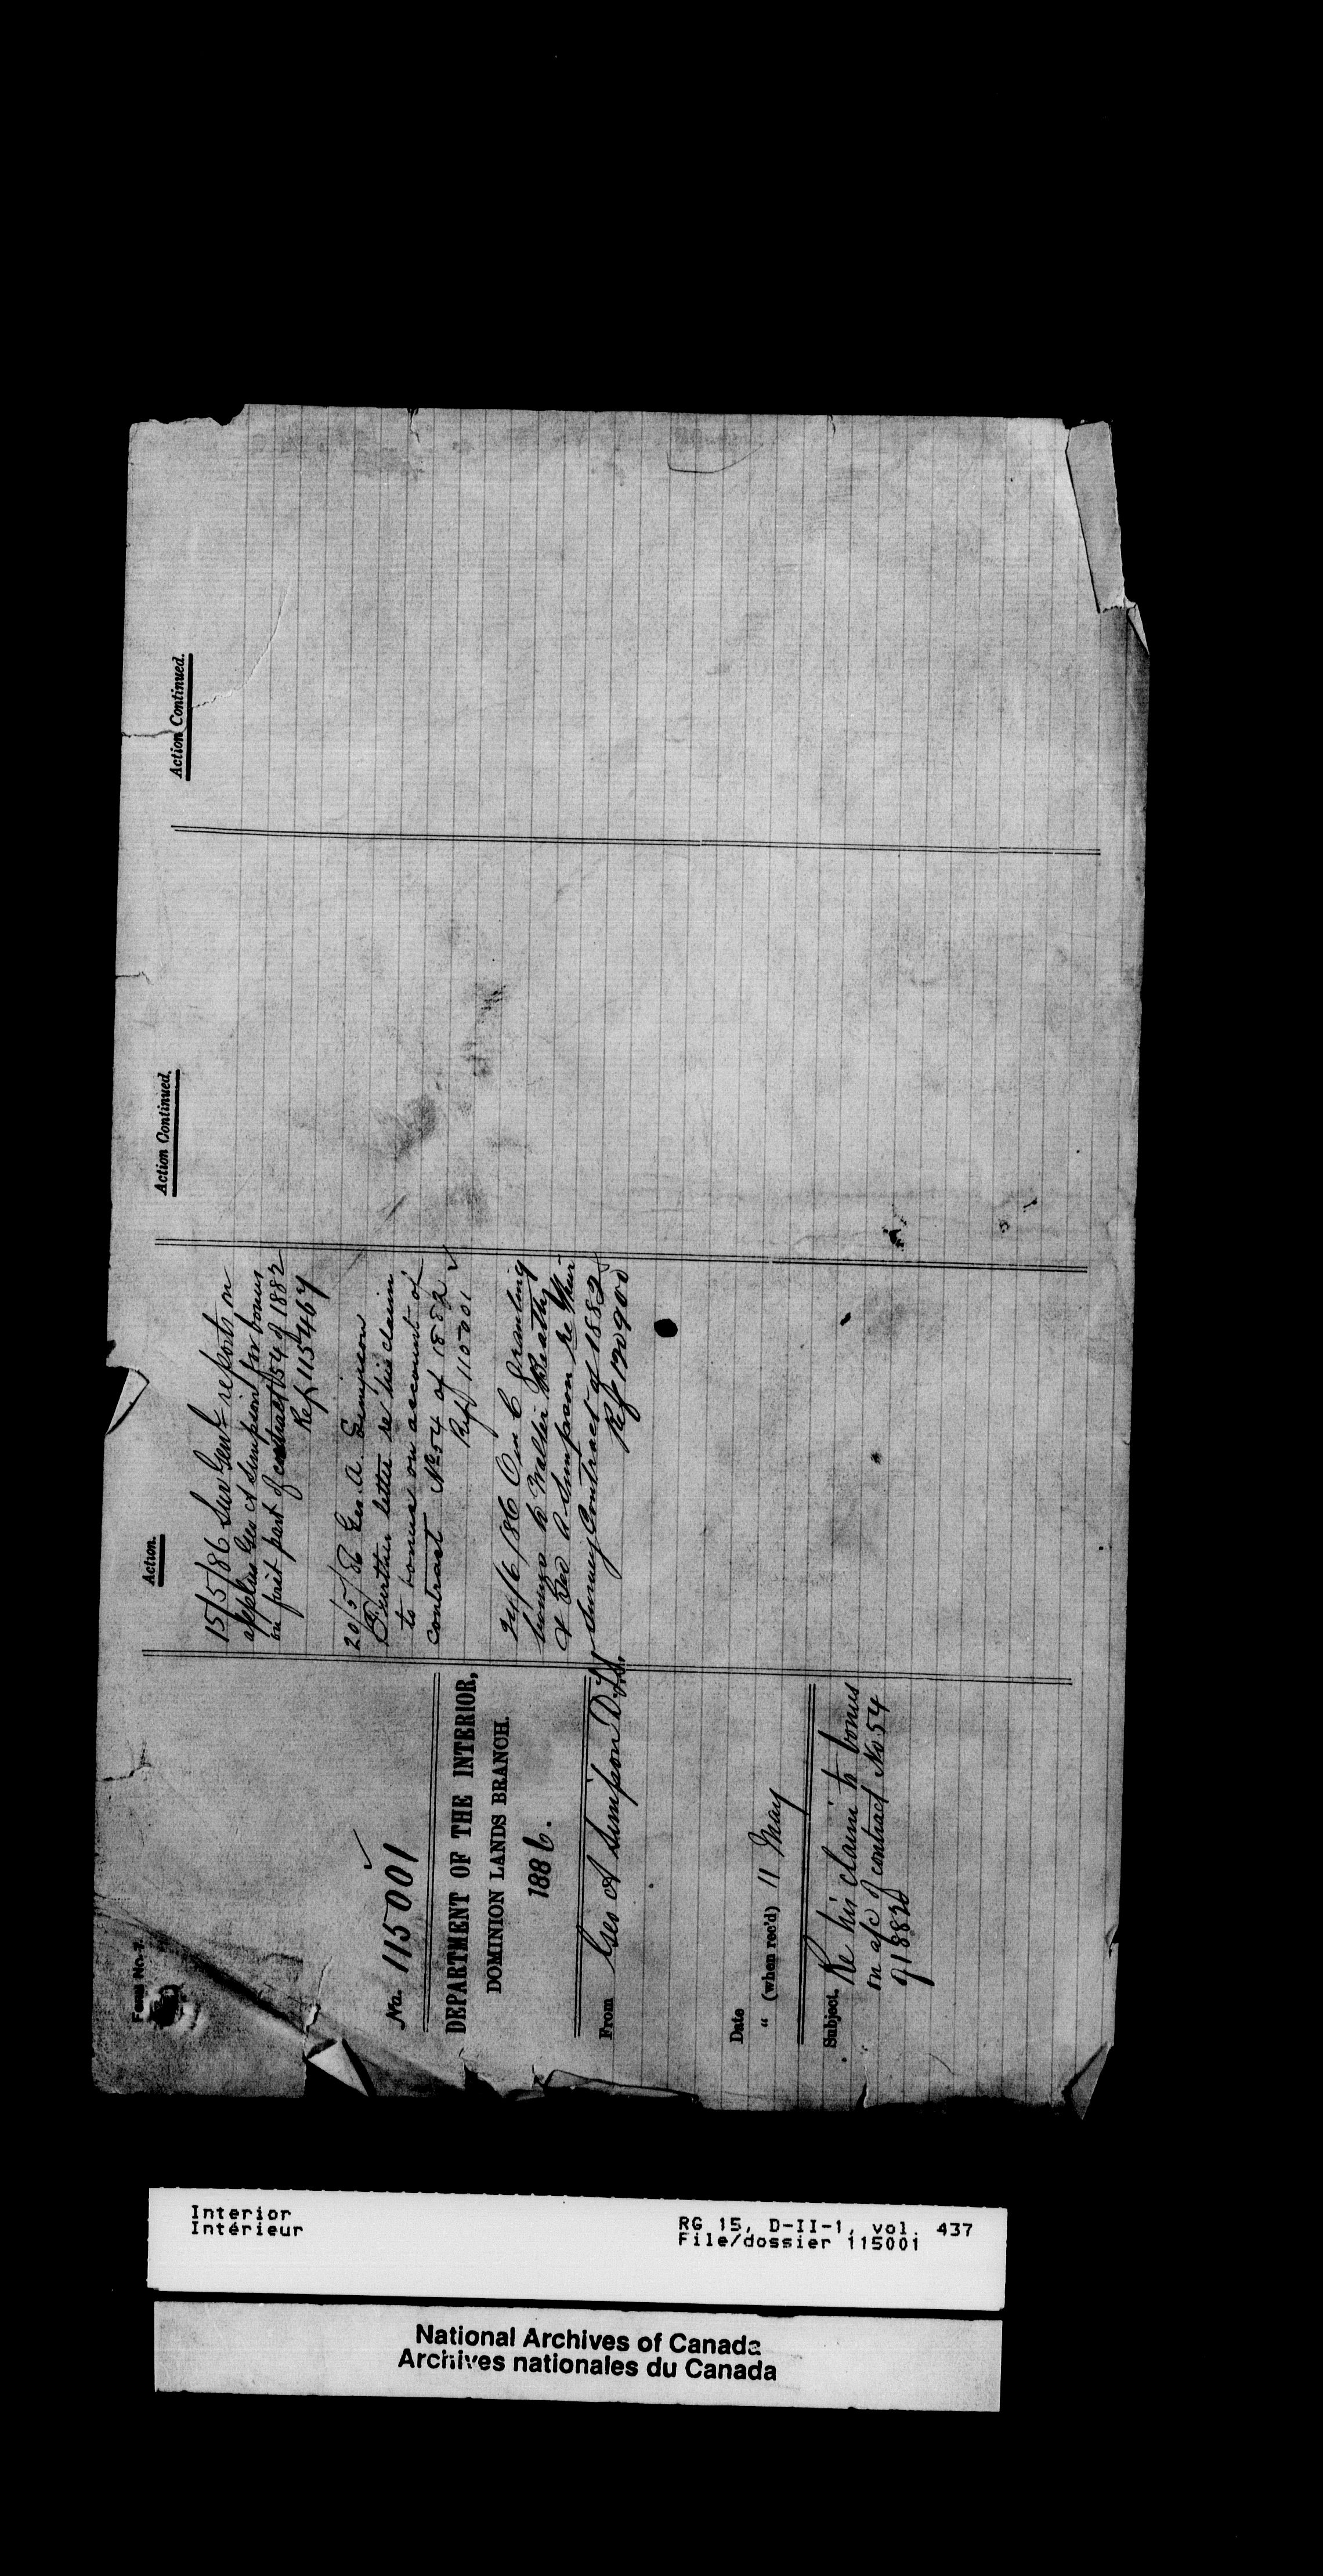 Form No. 7.
No. 115001
DEPARTMENT OF THE INTERIOR,
DOMINION LANDS BRANCH.
1886.
From Geo A Simpson D.L.S.
Date
" (when rec'd) 11 May
Subject. Re his claim to bonus
on a/c of contract No 54
of 1882
Action.
15/5/86 Surv Genl reports on
applin Geo A Simpson for bonus
on part of contract 54 of 1882
Ref 115467
20/5/86 Geo. A. Simpson
Further letter re his claim
to bonus on account of
contract No 54 of 1882
Ref 115001
24/6/86 O in C granting
bonus to Walter Beatty
& Geo A Simpson re their
Survey Contract of 1882
Ref 120900
Action Continued.
Action Continued.
Interior
Intérieur
RG 15, D-II-1, vol. 437
File/dossier 115001
National Archives of Canada
Archives nationales du Canada